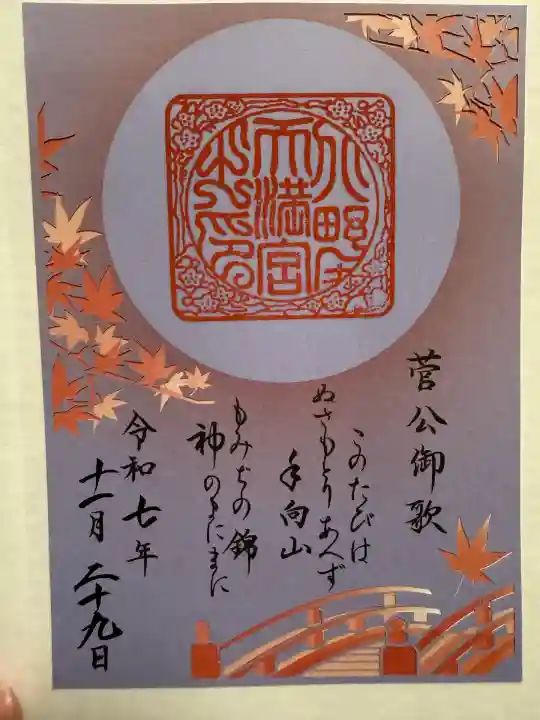 菅公御歌
このたびは
ぬさもとりあへず
手向山
もみぢの錦
神のまにまに
令和七年
十一月二十九日